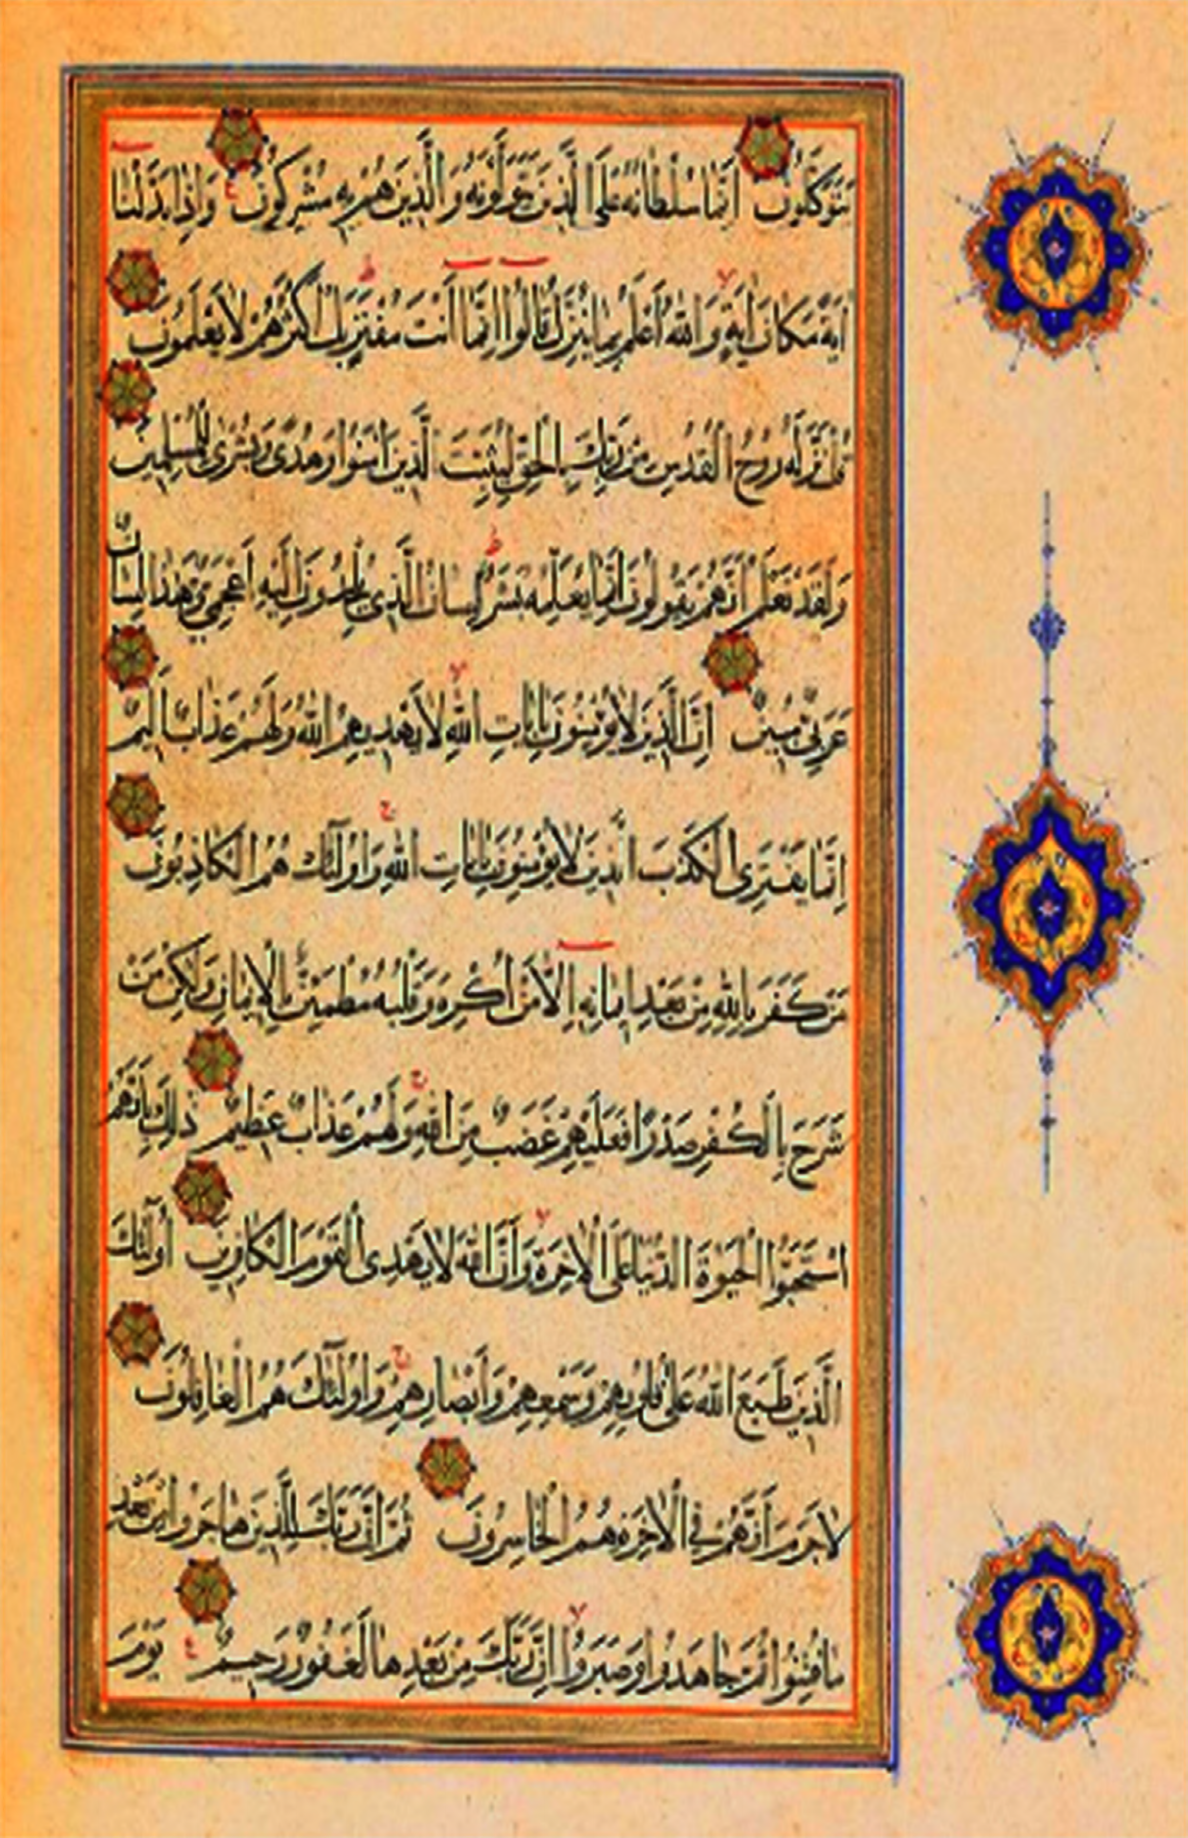 يَتَوَكَّلُونَ اِنَّمَا سُلْطَانُهُ عَلَى الَّذِينَ يَتَوَلَّوْنَهُ وَالَّذِينَ هُمْ بِهِ مُشْرِكُونَ وَاِذَا بَدَّلْنَا
اٰيَةً مَكَانَ اٰيَةٍ وَاللّٰهُ اَعْلَمُ بِمَا يُنَزِّلُ قَالُوا اِنَّمَا اَنْتَ مُفْتَرٍ بَلْ اَكْثَرُهُمْ لَا يَعْلَمُونَ
قُلْ نَزَّلَهُ رُوحُ الْقُدُسِ مِنْ رَبِّكَ بِالْحَقِّ لِيُثَبِّتَ الَّذِينَ اٰمَنُوا وَهُدًى وَبُشْرٰى لِلْمُسْلِمِينَ
وَلَقَدْ نَعْلَمُ اَنَّهُمْ يَقُولُونَ اِنَّمَا يُعَلِّمُهُ بَشَرٌ لِسَانُ الَّذِي يُلْحِدُونَ اِلَيْهِ اَعْجَمِيٌّ وَهٰذَا لِسَانٌ
عَرَبِيٌّ مُبِينٌ اِنَّ الَّذِينَ لَا يُؤْمِنُونَ بِاٰيَاتِ اللّٰهِ لَا يَهْدِيهِمُ اللّٰهُ وَلَهُمْ عَذَابٌ اَلِيمٌ
اِنَّمَا يَفْتَرِى الْكَذِبَ الَّذِينَ لَا يُؤْمِنُونَ بِاٰيَاتِ اللّٰهِ وَاُولٰٓئِكَ هُمُ الْكَاذِبُونَ
مَنْ كَفَرَ بِاللّٰهِ مِنْ بَعْدِ اِيمَانِهِ اِلَّا مَنْ اُكْرِهَ وَقَلْبُهُ مُطْمَئِنٌّ بِالْاِيمَانِ وَلٰكِنْ مَنْ
شَرَحَ بِالْكُفْرِ صَدْرًا فَعَلَيْهِمْ غَضَبٌ مِنَ اللّٰهِ وَلَهُمْ عَذَابٌ عَظِيمٌ ذٰلِكَ بِاَنَّهُمُ
اسْتَحَبُّوا الْحَيٰوةَ الدُّنْيَا عَلَى الْاٰخِرَةِ وَاَنَّ اللّٰهَ لَا يَهْدِى الْقَوْمَ الْكَافِرِينَ اُولٰٓئِكَ
الَّذِينَ طَبَعَ اللّٰهُ عَلٰى قُلُوبِهِمْ وَسَمْعِهِمْ وَاَبْصَارِهِمْ وَاُولٰٓئِكَ هُمُ الْغَافِلُونَ
لَا جَرَمَ اَنَّهُمْ فِي الْاٰخِرَةِ هُمُ الْخَاسِرُونَ ثُمَّ اِنَّ رَبَّكَ لِلَّذِينَ هَاجَرُوا مِنْ بَعْدِ
مَا فُتِنُوا ثُمَّ جَاهَدُوا وَصَبَرُوا اِنَّ رَبَّكَ مِنْ بَعْدِهَا لَغَفُورٌ رَحِيمٌ يَوْمَ